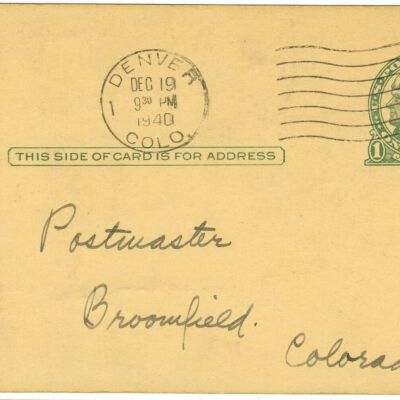 DENVER
DEC 19
9 30 PM
1
1940
COLO.
1
THIS SIDE OF CARD IS FOR ADDRESS
Postmaster
Broomfield.
Colorad